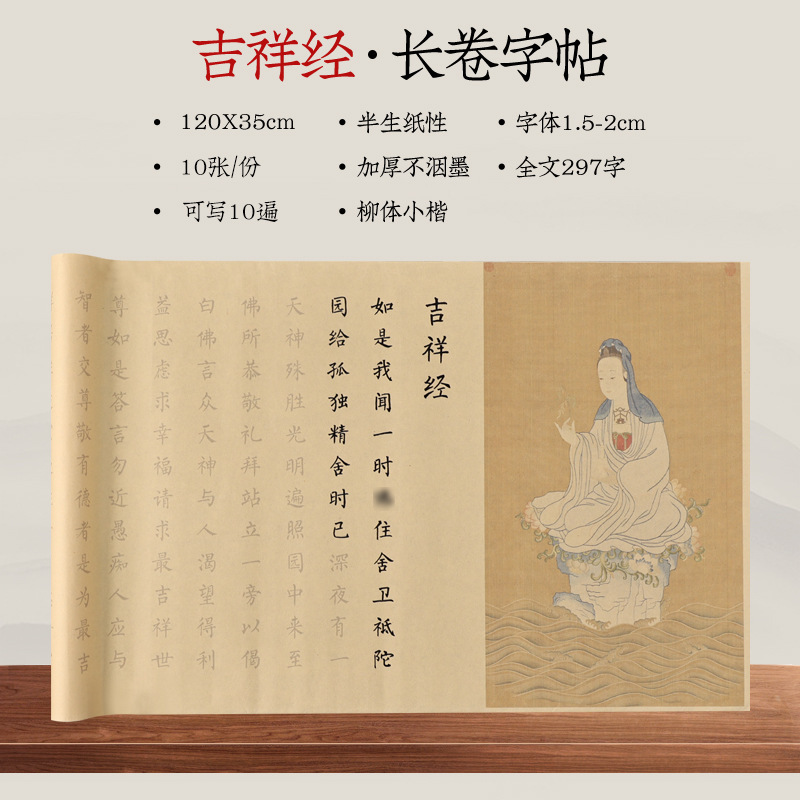 吉祥经·长卷字帖
• 120X35cm
• 半生纸性
• 字体1.5-2cm
• 10张/份
• 加厚不洇墨
• 全文297字
• 可写10遍
• 柳体小楷
吉祥经
如是我闻一时住舍卫祗陀
园给孤独精舍时已深夜有一
天神殊胜光明遍照园中来至
佛所恭敬礼拜站立一旁以偈
白佛言众天神与人渴望得利
益思虑求幸福请求最吉祥世
尊如是答言勿近愚痴人应与
智者交尊敬有德者是为最吉